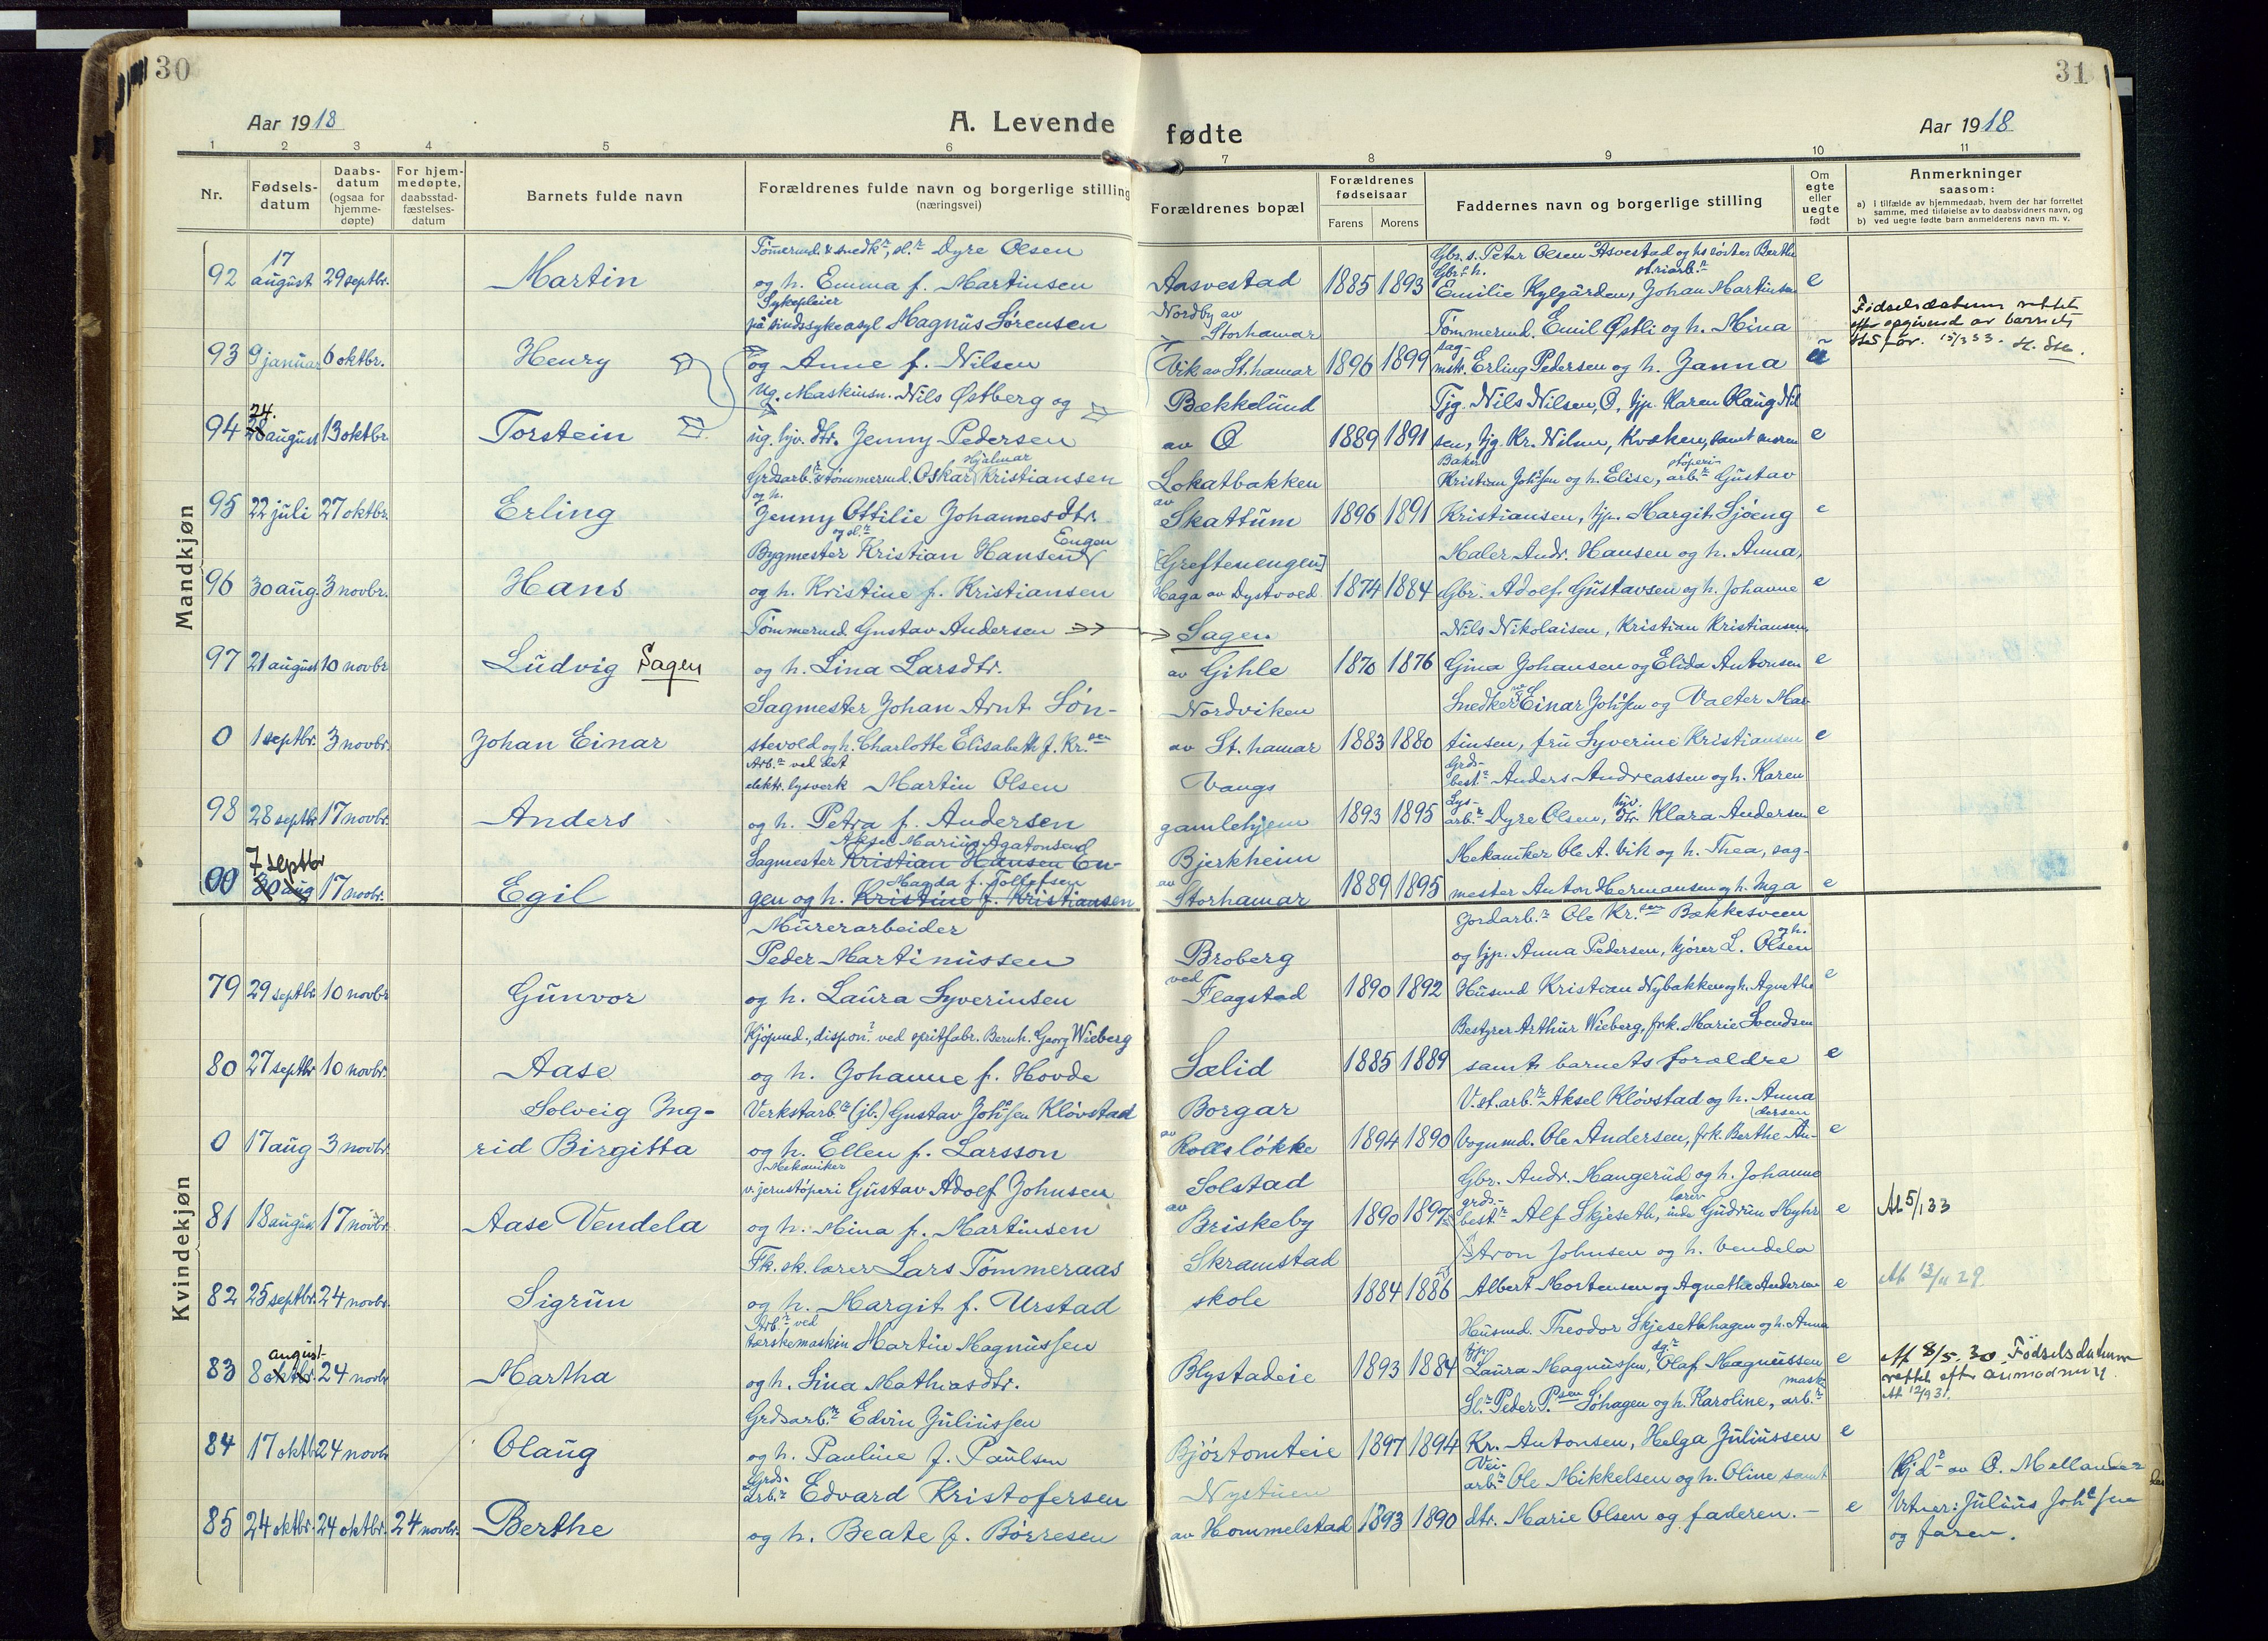 30
31
Aar 1918
A. Levende
fødte
Aar 1918
1 2 3 4 5 6 7 8 9 10 11
Nr.
Fødsels-
datum
Daabs-
datum
(ogsaa for
hjemme-
døpte)
For hjem-
medøpte,
daabsstad-
fæstelses-
datum
Barnets fulde navn
Forældrenes fulde navn og borgerlige stilling
(næringsvei)
Forældrenes bopæl
Forældrenes
fødselsaar
Farens Morens
Faddernes navn og borgerlige stilling
Om
egte
eller
uegte
født
Anmerkninger
saasom:
a) i tilfælde av hjemmedaab, hvem der har forrettet
samme, med tilføielse av to daabsvidners navn, og
b) ved uegte fødte barn anmelderens navn m. v.
Mandkjøn
Tømmermd. & snedkr, sl.r Dyre Olsen Gbr. s. Peter Olsen Asvestad og hs søster Berthe
92 17 august 29 septbr. Martin og h. Emma f. Martinsen Aasvestad 1885 1893 Emilie Kylgården, Johan Martinsen e
Sykepleier
på sindssykeasyl Magnus Sørensen Nordby av Storhamar Tømmermd. Emil Østli og h. Mina
Fødselsdatum rettet
93 9 januar 6 oktbr. Henry og Anne f. Nilsen Vik av St.hamar 1896 1899 sagmstr. Erling Pedersen og h. Janna
Ug. Maskinsn. Nils Østberg og Bækkelund Tjg. Nils Nilsen, O, tjp. Karen Olaug Nil
94 24. 28 august 13 oktbr. Torstein ug. hjv. dtr. Jenny Pedersen av O 1889 1891 sen, tjg. Kr. Nilsen, Kvæken, samt moren e
Grdsarb.r & tømmermd. Oskar Hjalmar Kristiansen Lokatbakken Baker Kristian Johssen og h. Elise, støperiarb.r Gustav
95 22 juli 27 oktbr. Erling og h. Jenny Ottilie Johannesdtr. av Skattum 1896 1891 Kristiansen, tjp. Margit Sjøeng e
Bygmester og sl.r Kristian Hansen Engen [Greftenengen] Maler Andr. Hansen og h. Anna,
96 30 aug. 3 novbr. Hans og h. Kristine f. Kristiansen Haga av Dystvold 1874 1884 Gbr. Adolf Gustavsen og h. Johanne e
Tømmermd. Gustav Andersen Sagen Nils Nikolaisen, Kristian Kristiansen,
97 21 august 10 novbr. Ludvig Sagen og h. Lina Larsdtr. av Gihle 1870 1876 Gina Johansen og Elida Antonsen e
Sagmester Johan Arnt Søn- Nordviken Snedker Einar Johssen og Valter Mar-
0 1 septbr. 3 novbr. Johan Einar stevold og h. Charlotte Elisabeth f. Kr.sen av St. hamar 1883 1880 tinsen, fru Syverine Kristiansen e
Arb.r ved det
elektr. lysverk Martin Olsen Vangs Grdsbest.r Anders Andreassen og h. Karen
98 28 septbr. 17 novbr. Anders og h. Petra f. Andersen gamlehjem 1893 1895 Lysarb.r Dyre Olsen, hjv. dtr. Klara Andersen e
Aksel Marius Agatonsen
Sagmester Kristian Hansen En- Bjerkheim Mekaniker Ole A. Vik og h. Thea, sag-
Magda f. Tollefsen
00 7 septbr 30 aug 17 novbr. Egil gen og h. Kristine f. Kristiansen av Storhamar 1889 1895 mester Anton Hermansen og h. Inga e
Kvindekjøn
Murerarbeider Jordarb.r Ole Kr.sen Bækkesveen
Peder Martinussen Broberg og tjp. Anna Pedersen, kjører L. Olsen og h.
79 29 septbr. 10 novbr. Gunvor og h. Laura Syverinsen ved Flagstad 1890 1892 Husmd Kristian Nybakken og h. Agnethe e
Kjøpmd., dispon.r ved spritfabr. Bernh. Georg Wieberg Bestyrer Arthur Wieberg, frk. Marie Svendsen
80 27 septbr 10 novbr. Aase og h. Johanne f. Hovde Sælid 1885 1889 samt barnets forældre e
Solveig Ing- Verkstarb.r (jb.) Gustav Johssen Kløvstad Borgar V.st.arb.r Aksel Kløvstad og h. Anna
0 17 aug 3 novbr. rid Birgitta og h. Ellen f. Larsson av Rollsløkke 1894 1890 Vognmd. Ole Andersen, frk. Berthe An- dersen e
Mekaniker
v. jernstøperi Gustav Adolf Johnsen Solstad Gbr. Andr. Mangerud og h. Johanne
81 18 august 17 novbr. Aase Vendela og h. Mina f. Martinsen av Briskeby 1890 1897 grdsbest.r Alf Skjeseth, lærerinde Gudrun Myhr e
At 5/1 33
Fk. sk. lærer Lars Tømmeraas Skramstad Aron Johnsen og h. Vendela
82 25 septbr. 24 novbr. Sigrun og h. Margit f. Urstad skole 1884 1886 Albert Mortensen og Agnethe Andersen e
At 13/11 29
Arb.r ved
tærskemaskin Martin Magnussen Husmd. Theodor Skjesethhagen og h. Anna
83 8 oktbr. august 24 novbr. Martha og h. Lina Mathiasdtr. Blystadeie 1893 1884 tjp. Laura Magnussen, Olaf Magnussen e
At 8/5. 30. Fødselsdatum
rettet efter anmodning.
At 12/9 31.
Grdsarb.r Edvin Juliussen Sl.r Peder P.sen Søhagen og h. Karoline, mask.arb.r
84 17 oktbr. 24 novbr. Olaug og h. Pauline f. Paulsen Bjørtomteie 1897 1894 Kr. Antonsen, Helga Juliussen e
Grdsarb.r Edvard Kristofersen Nystuen Veiarb.r Ole Mikkelsen og h. Oline samt
85 24 oktbr. 24 oktbr. 24 novbr. Berthe og h. Beate f. Børresen av Hommelstad 1893 1890 dtr. Marie Olsen og faderen. — e
Hjd. av O. Mellander
Vitner: Julius Johssen
og faren.